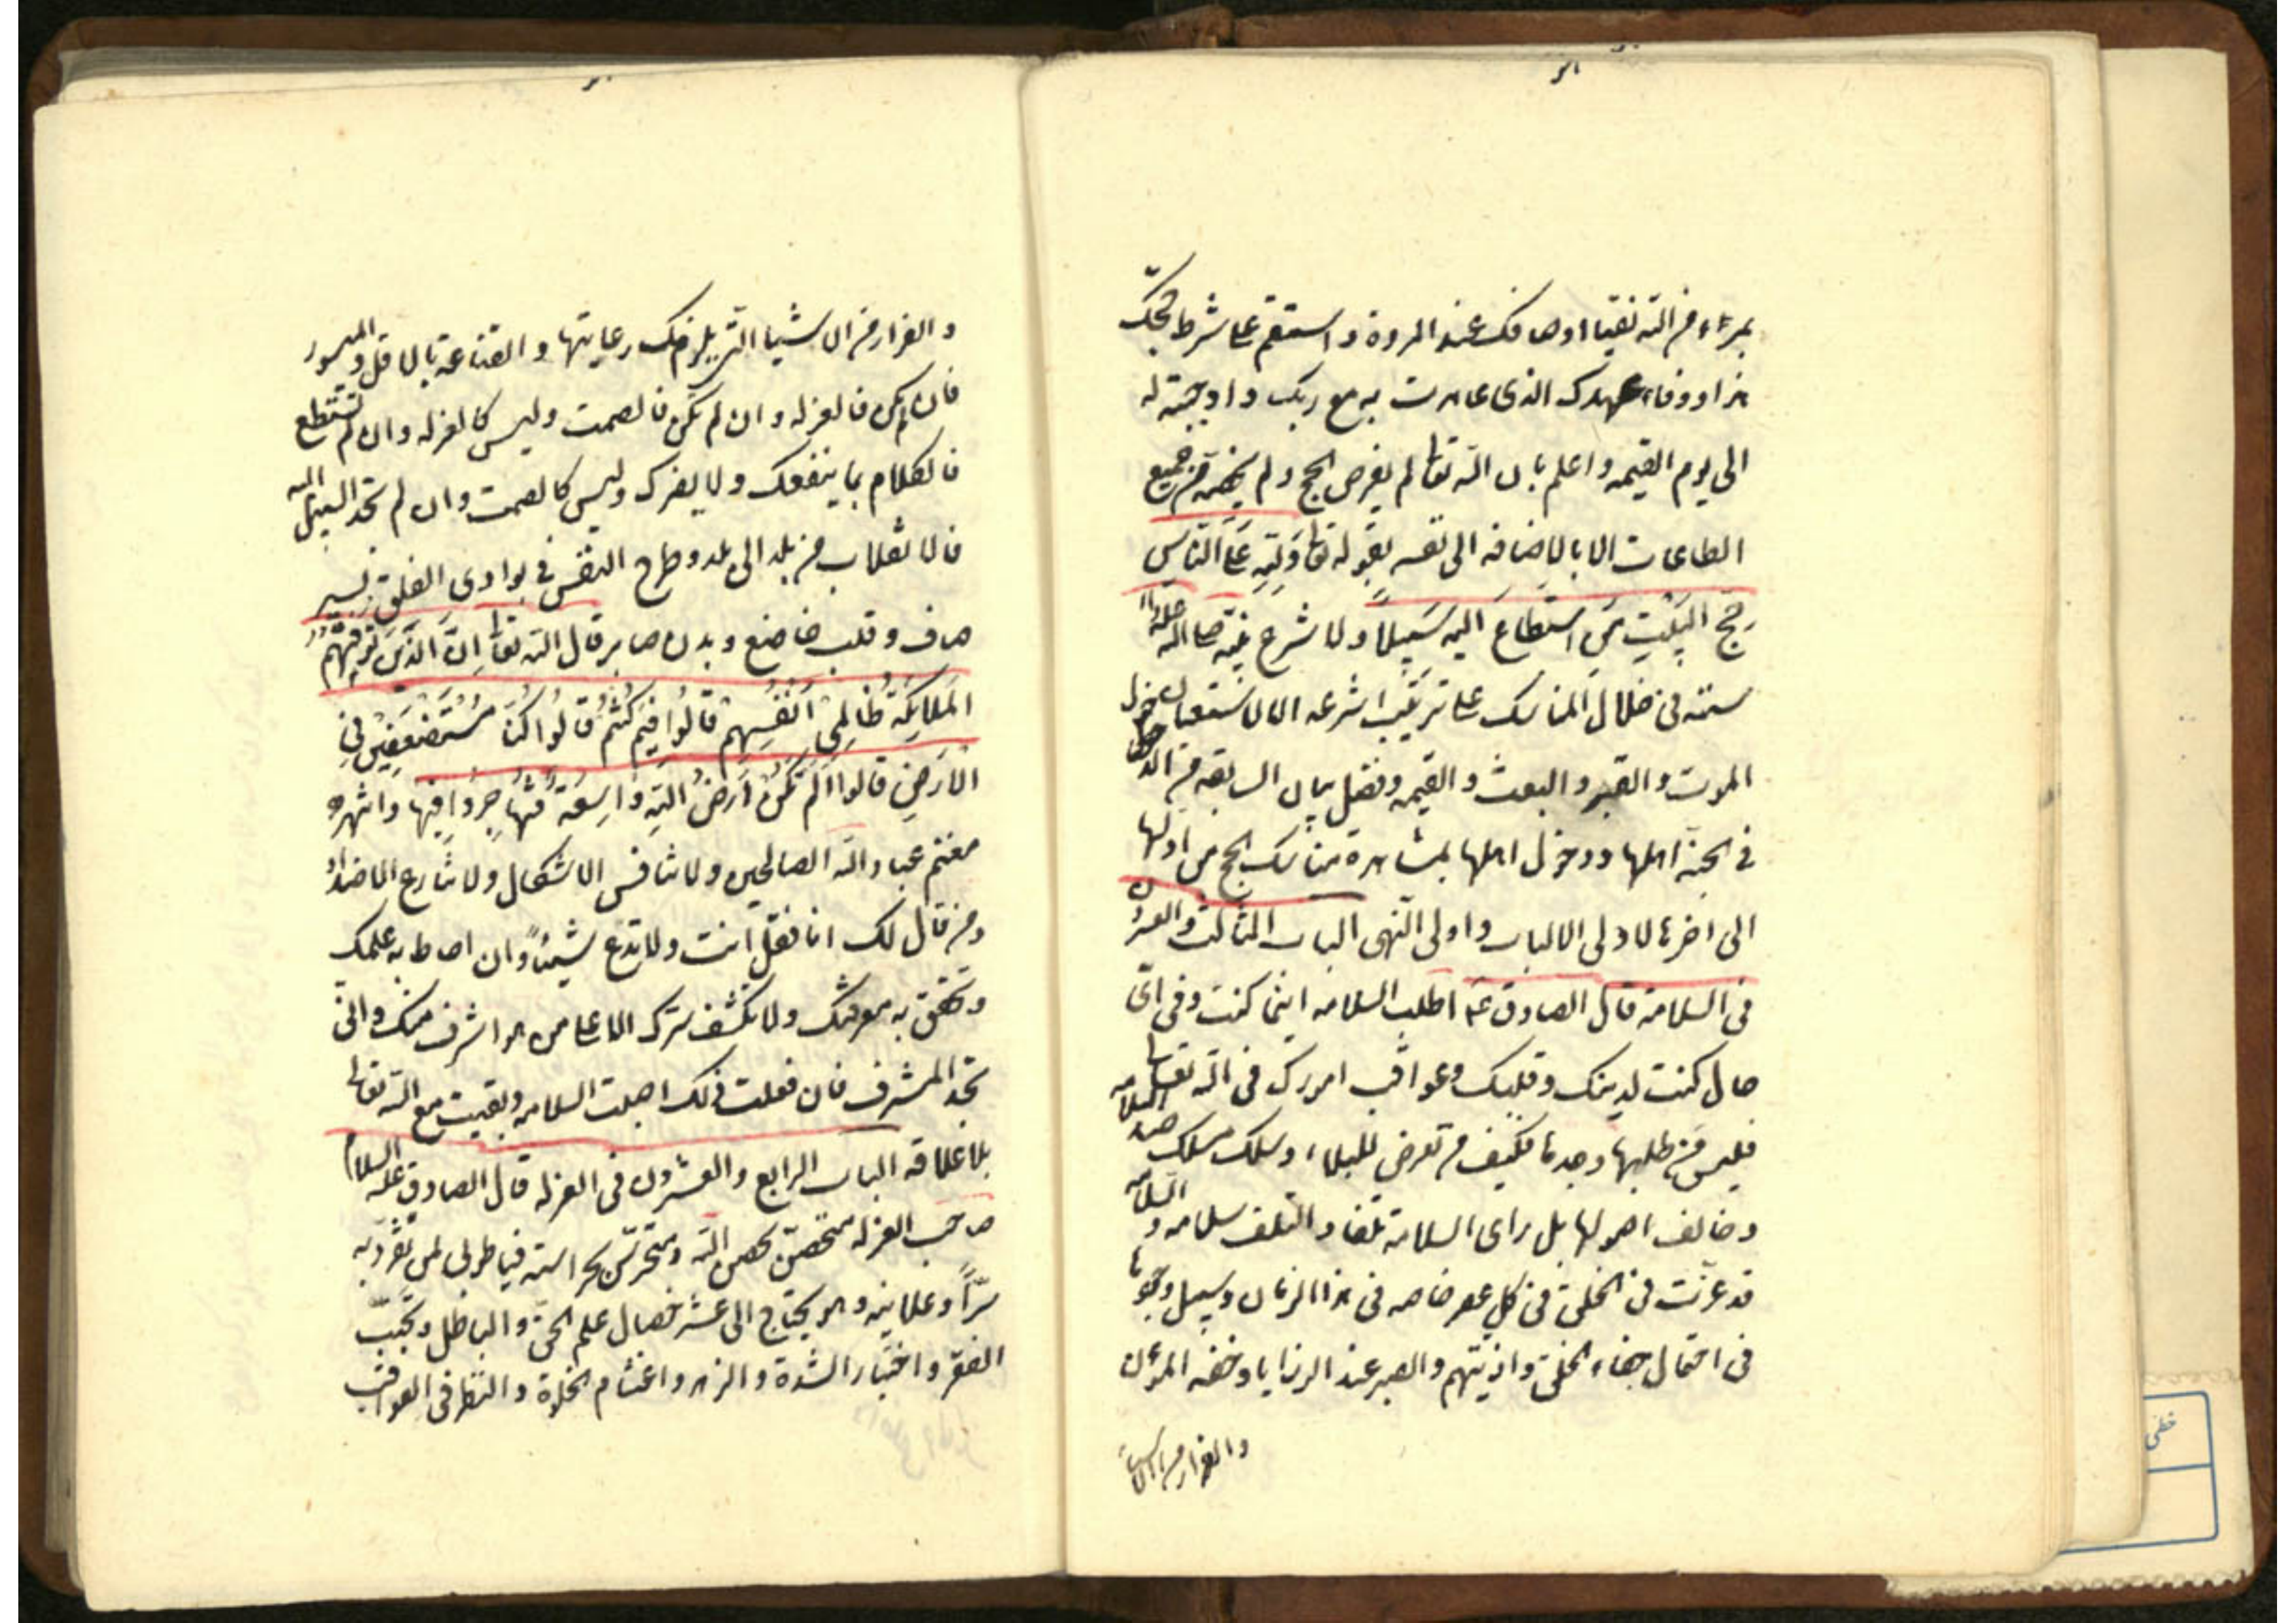 بمراء من الله نقيا اوصافك عند المروة واستقم على شرط حجك
هذا ووفاء عهدك الذى عاهدت به مع ربك واوجبته له
الى يوم القيمه واعلم بان الله تعالى لم يفرض الحج ولم يخصه من جميع
الطاعات الا بالاضافه الى نفسه بقوله تعالى وَلِلّهِ عَلَى النَّاسِ
حِجُّ الْبَيْتِ مَنِ اسْتَطَاعَ اليهِ سَبِيلاً ولا شرع نبيه صلى الله عليه واله
سنته فى خلال المناسك على ترتيب ما شرعه الا للاستعداد
الموت والقبر والبعث والقيمه وفضل بيان السابقه من الدخول
فى الجنة اهلها ودخول اهلها بمشاهدة مناسك الحج من اولها
الى اخرها لاولى الالباب واولى النهى الباب الثالث والعشرون
فى السلامة قال الصادق ع اطلب السلامه اينما كنت وفى اى
حال كنت لدينك وقلبك وعواقب امورك فى الله تعالى
فليس من طلبها وجدها فكيف من تعرض للبلاء وسلك مسلك ضد السلامه
وخالف اصولها بل راى السلامة تلفا والتلف سلامه والسلامه
قد عزّت فى الخلق فى كل عصر خاصه فى هذا الزمان وسبيل وجودها
فى احتمال جفاء الخلق واذيتهم والصبر عند الرزايا وخفه المؤن
والفرار من الاشياء
والفرار من الاشيا التى يلزمك رعايتها والقناعة بالاقل والميسور
فان لم يكن فالعزله وان لم تكن فالصمت وليس كالعزله وان لم تستطع
فالكلام بما ينفعك ولا يضرك وليس كالصمت وان لم تجد السبيل اليه
فالانقلاب من بلد الى بلد وطرح النفس فى بوادى التلف بسر
صاف وقلب خاضع وبدن صابر قال الله تعالى اِنَّ الَّذينَ تَوَفّيهُمُ
الْمَلائِكَةُ ظالِمِى اَنْفُسِهِمْ قالُوا فِيمَ كُنْتُمْ قالُوا كُنّا مُسْتَضْعَفِينَ فِى
الاَرْضِ قالوا اَلَمْ تَكُنْ اَرضُ اللهِ واسِعَةً فَتُهاجِرُوا فِيها وانتهز
مغنم عباد الله الصالحين ولا تنافس الاشكال ولا تنازع الاضداد
ومن قال لك انا فقل انت ولا تدع شيئاً وان احاط به علمك
وتحقق به معرفتك ولا تكشف سرك الا على من هو اشرف منك وانى
تجد المشرف فان فعلت ذلك اصبت السلامه وبقيت مع الله تعالى
بلا علاقه الباب الرابع والعشرون فى العزله قال الصادق عليه السلام
صاحب العزله متحصن بحصن الله ومتحرس بحراسته فيا طوبى لمن تفرد به
سرّاً وعلانيه وهو يحتاج الى عشر خصال علم الحق والباطل وتحبّب
الفقر واختيار الشدة والزهد واغتنام الخلوة والنظر فى العواقب
خطى